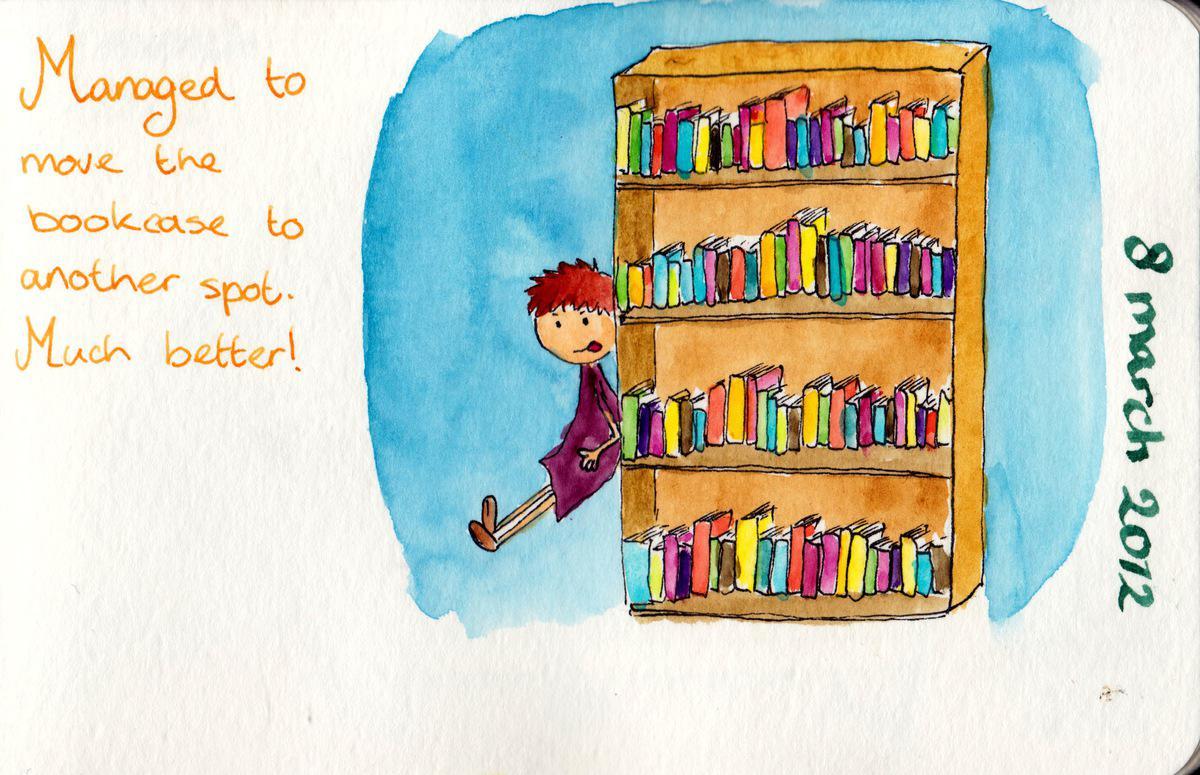 Managed to
move the
bookcase to
another spot.
Much better!
8 march 2012